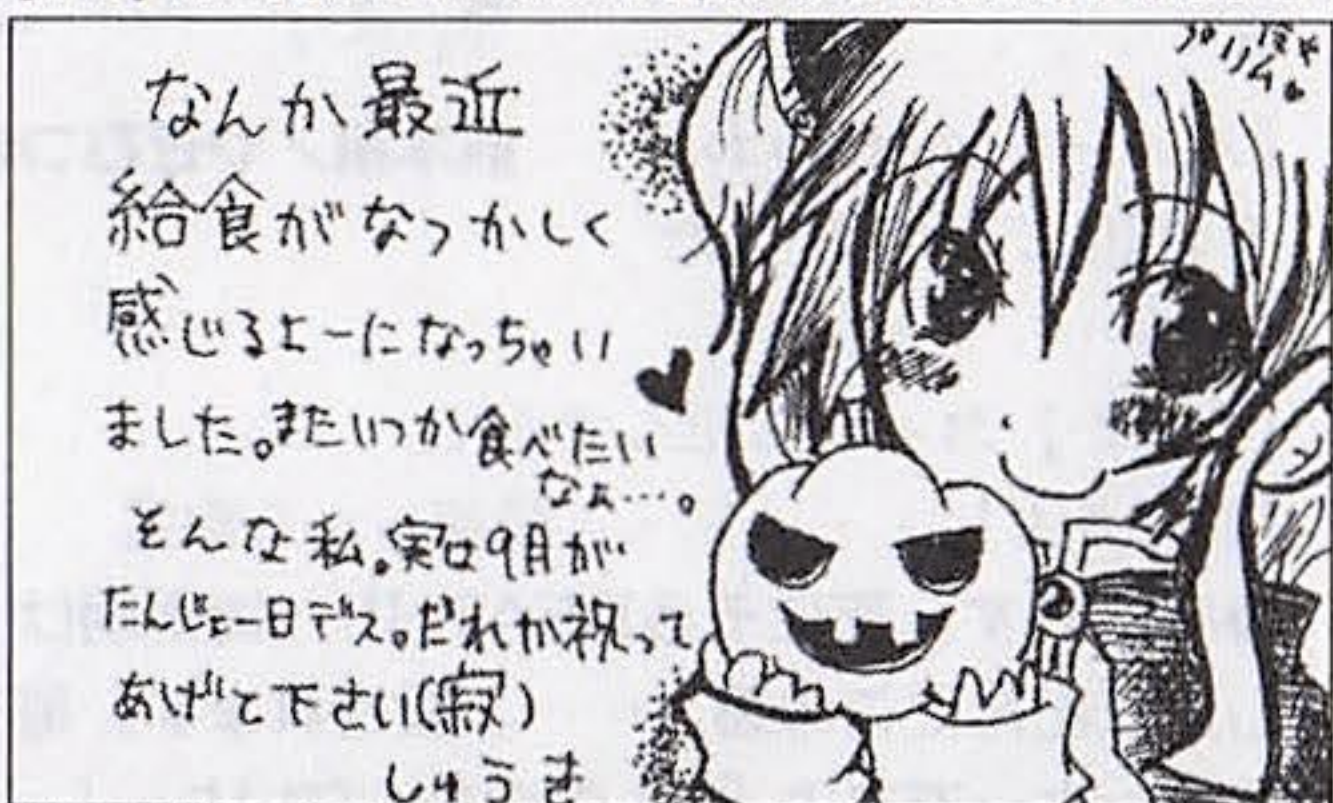 なんか最近
給食がなつかしく
感じるよーになっちゃい
ました。またいつか食べたい
なぁ…。
そんな私。実は9月が
たんじょー日デス。だれか祝って
あげて下さい(寂)
しゅうき